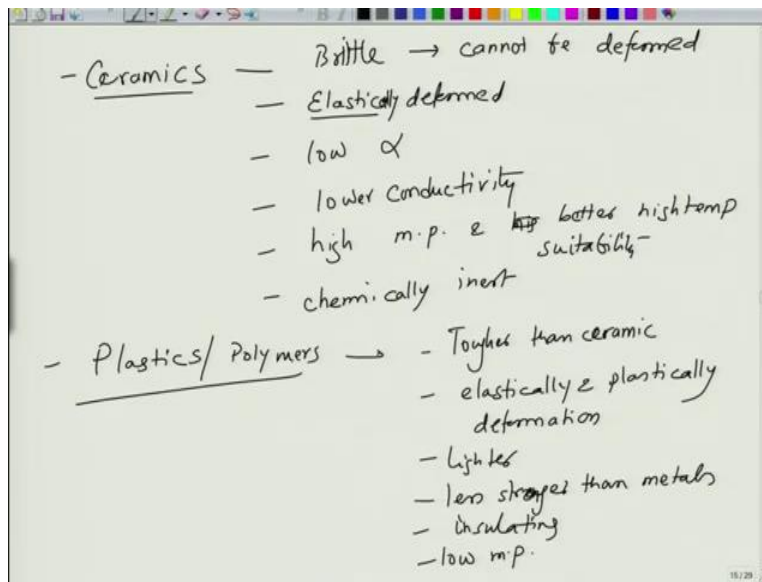 - Ceramics — Brittle → cannot be deformed
— Elastically deformed
— low α
— lower conductivity
— high m.p. & better high temp
suitability
— chemically inert
- Plastics/Polymers → - Tougher than ceramic
- elastically & plastically
deformation
- Lighter
- less stronger than metals
- insulating
- low m.p.
15/29